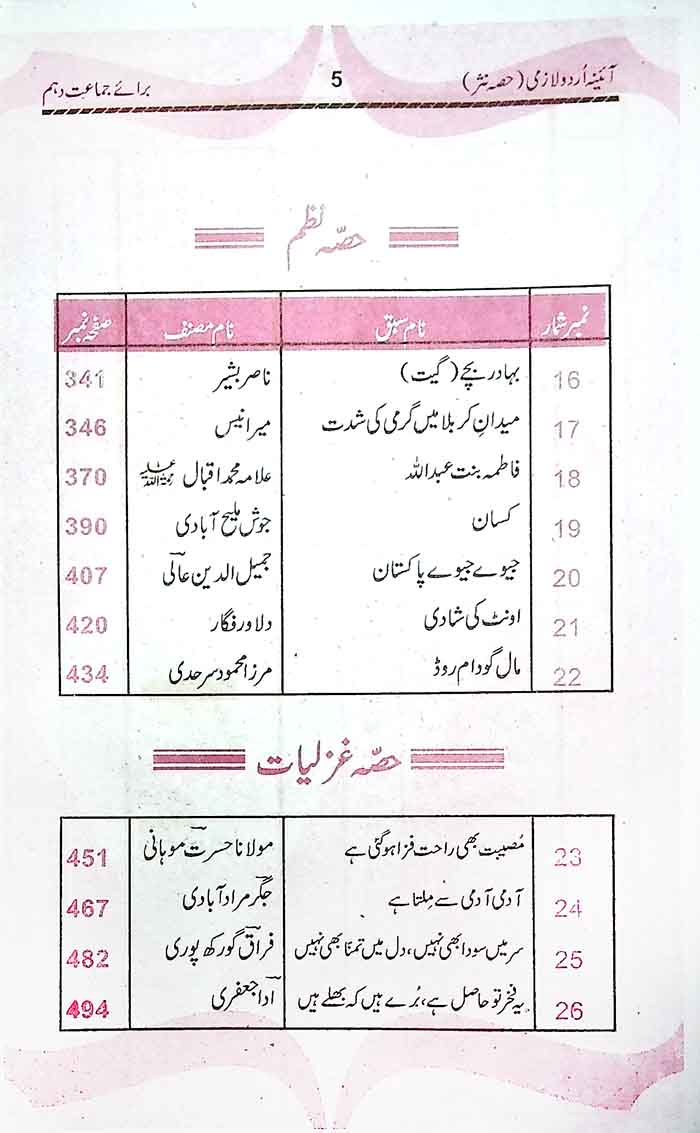 آئینہ اُردو لازمی (حصہ نثر) 5 برائے جماعت دہم
حصّہ نظم
نمبر شمار نام سبق نام مصنف صفحہ نمبر
16 بہادر بچے (گیت) ناصر بشیر 341
17 میدانِ کربلا میں گرمی کی شدت میر انیس 346
18 فاطمہ بنت عبداللہ علامہ محمد اقبال رحمۃ اللہ علیہ 370
19 کسان جوش ملیح آبادی 390
20 جیوے جیوے پاکستان جمیل الدین عالی 407
21 اونٹ کی شادی دلاور فگار 420
22 مال گودام روڈ مرزا محمود سرحدی 434
حصّہ غزلیات
23 مُصیبت بھی راحت فزا ہو گئی ہے مولانا حسرت موہانی 451
24 آدمی آدمی سے مِلتا ہے جگر مراد آبادی 467
25 سر میں سودا بھی نہیں، دل میں تمنّا بھی نہیں فراق گورکھ پوری 482
26 یہ فخر تو حاصل ہے، بُرے ہیں کہ بھلے ہیں ادا جعفری 494